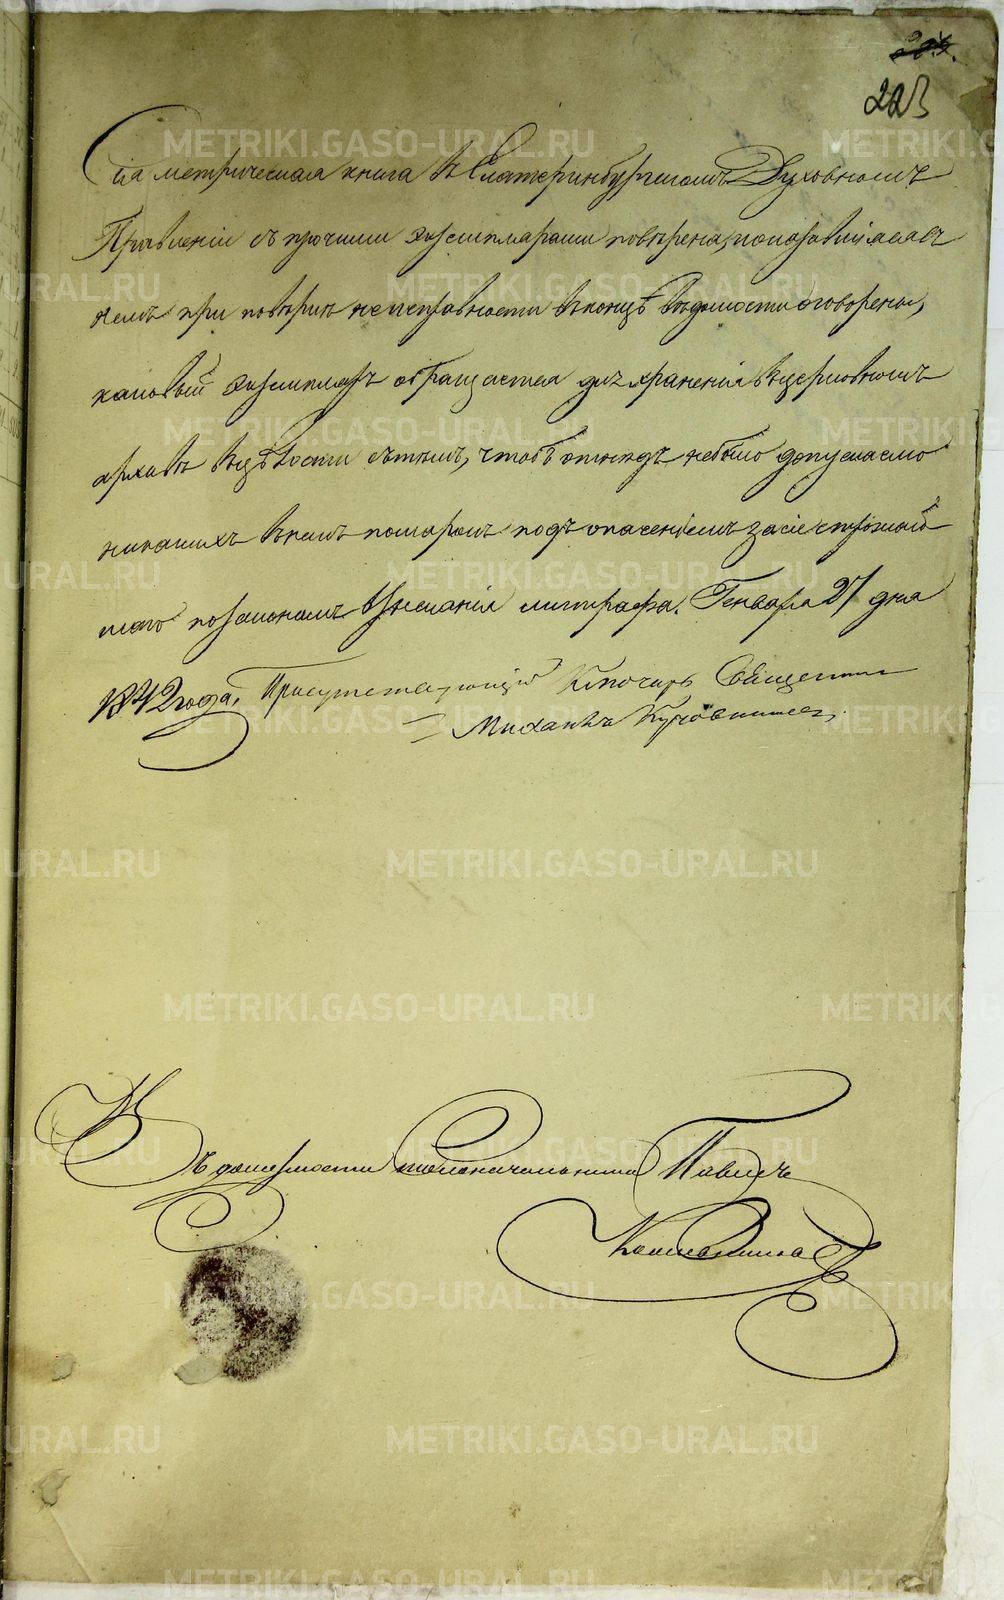 223
Сія метрическая книга въ Екатеринбургскомъ Духовномъ
Правленіи съ прочими экземплярами повѣрена, показавшіяся въ
немъ при повѣркѣ неисправности въ концѣ вѣдомости оговорены,
каковый экземпляръ обращается для храненія въ церковномъ
архивѣ въ цѣлости съ тѣмъ, чтобъ отнюдъ небыло допускаемо
никакихъ въ немъ помарокъ подъ опасеніемъ за сіе строжай
шаго по законамъ взысканія штрафа. Генваря 27 дня
1842 года. Присутствующій Ключарь Священникъ
Михаилъ
Въ должности столоначальника Павелъ
METRIKI.GASO-URAL.RU